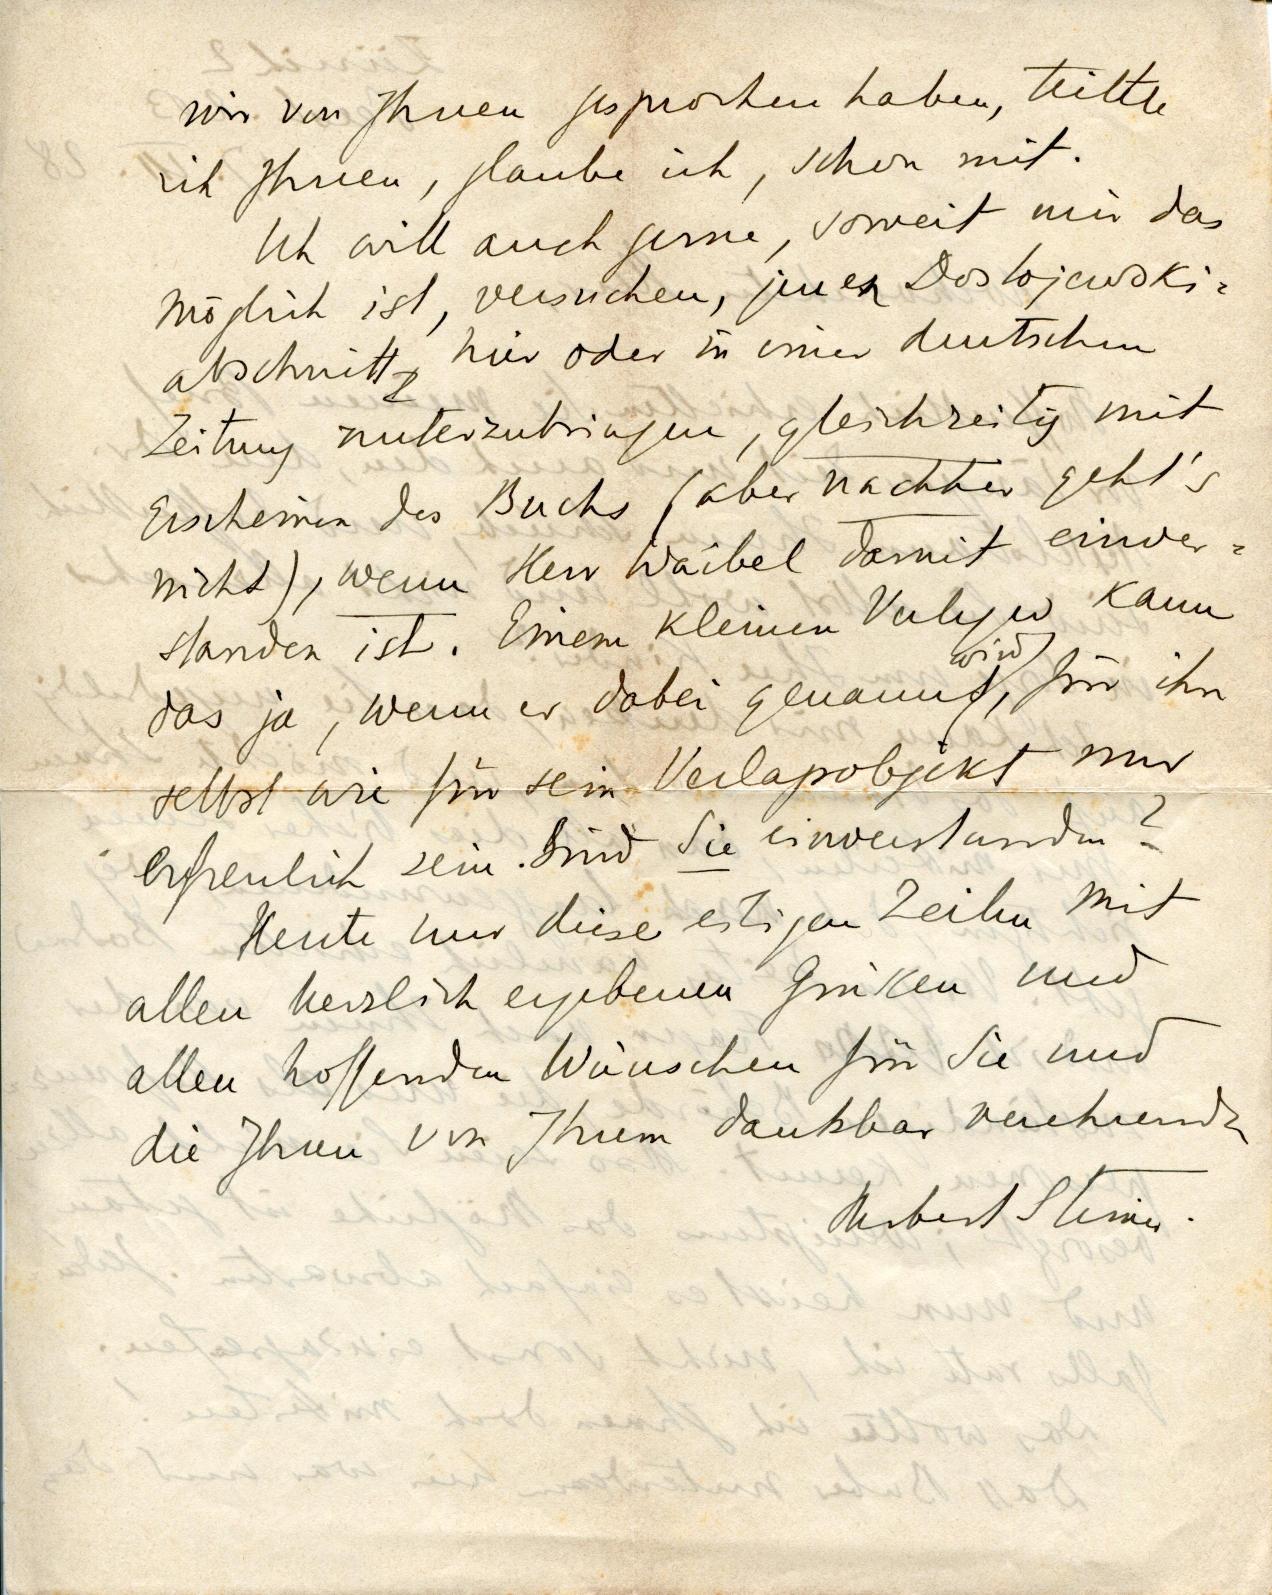 wir von Ihnen gesprochen haben, teilte
ich Ihnen, glaube ich, schon mit.
Ich will auch gerne, soweit mir das
möglich ist, versuchen, jenen Dostojewski=
abschnitt hier oder in einer deutschen
Zeitung unterzubringen, gleichzeitig mit
Erscheinen des Buchs (aber nachher geht's
nicht), wenn Herr Waibel damit einver=
standen ist. Einem kleinen Verleger kann
das ja, wenn er dabei genannt wird, für ihn
selbst wie für sein Verlagsobjekt nur
erfreulich sein. Sind Sie einverstanden?
Heute nur diese eiligen Zeilen mit
allen herzlich ergebenen Grüßen und
allen hoffenden Wünschen für Sie und
die Ihren von Ihrem dankbar verehrenden
Herbert Steiner.